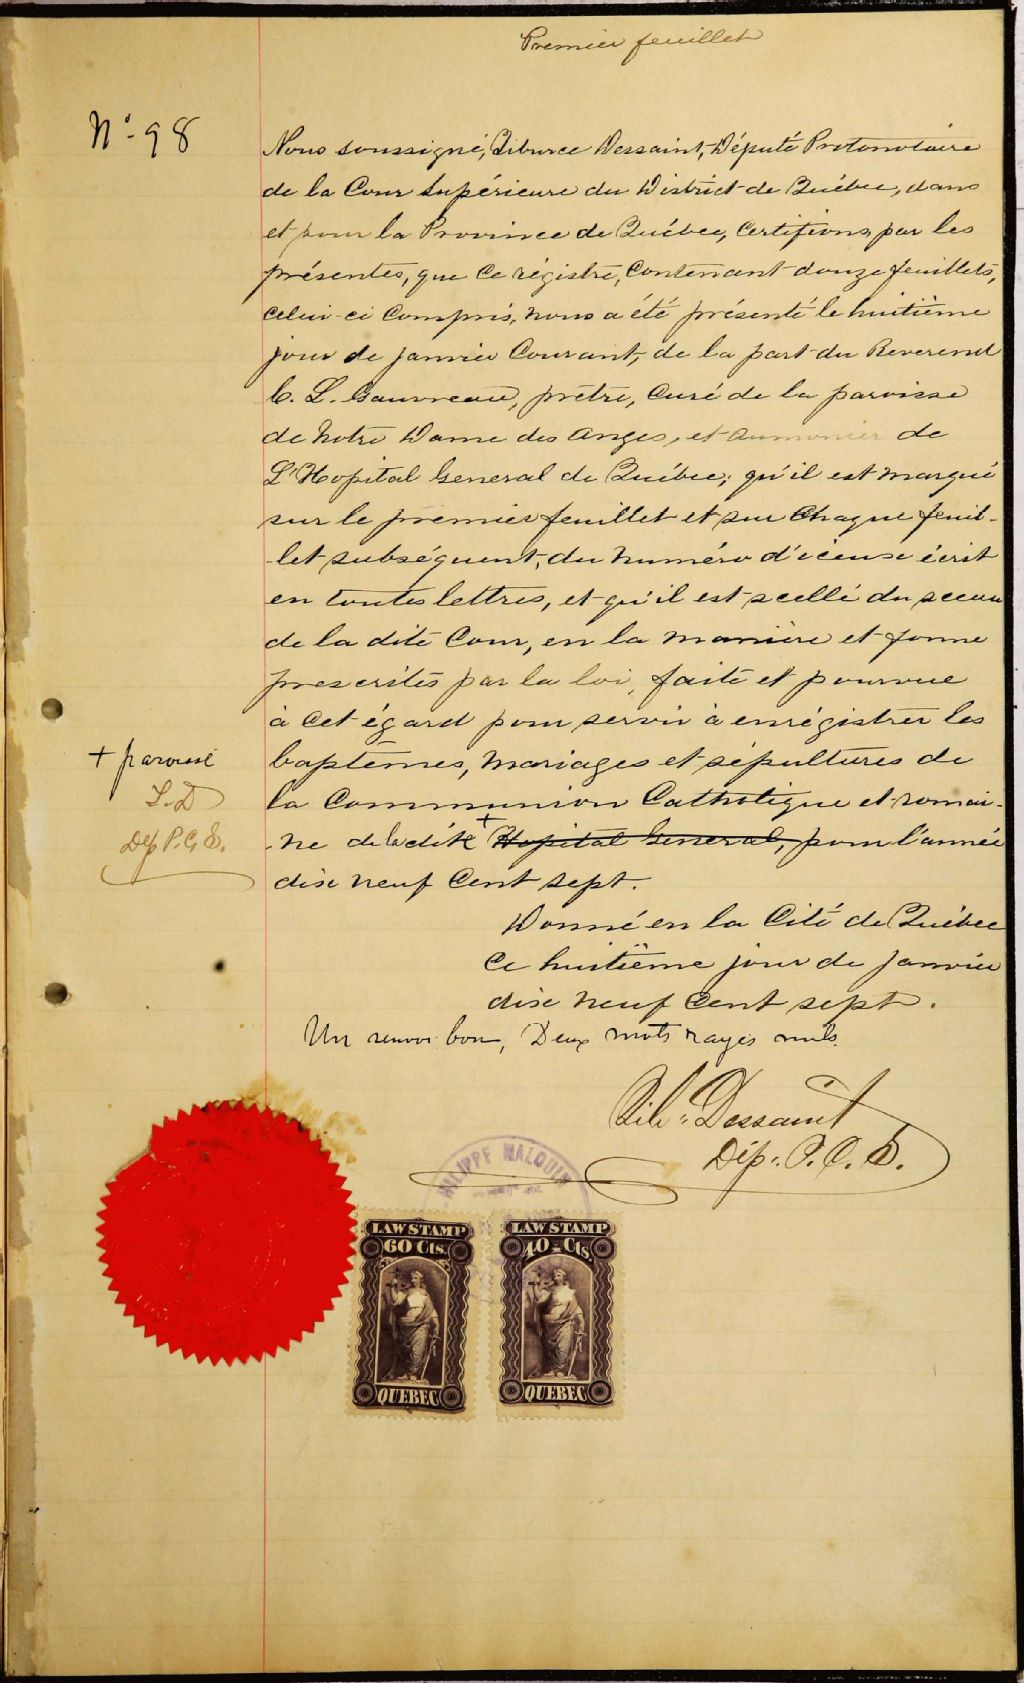 Premier feuillet
No. 98
Nous soussigné, Tiburce Dessaint, Député Protonotaire
de la Cour Supérieure du District de Québec, dans
et pour la Province de Québec, Certifions, par les
présentes, que ce régistre, contenant douze feuillets,
celui-ci compris, nous a été présenté le huitième
jour de janvier courant, de la part du Reverend
C. L. Gauvreau, prêtre, curé de la paroisse
de Notre Dame des Anges, et aumonier de
L'Hopital General de Québec; qu'il est marqué
sur le premier feuillet et sur chaque feuil-
-let subséquent, du numéro d'iceux écrit
en toutes lettres, et qu'il est scellé du sceau
de la dite Cour, en la manière et forme
prescrites par la loi, faite et pourvue
à cet égard pour servir à enrégistrer les
baptêmes, mariages et sépultures de
la Communion Catholique et romai-
-ne de ladite + Hopital General, pour l'année
dix neuf cent sept.
+ paroisse
T. D
Dép P. C. S.
Donné en la Cité de Québec
ce huitième jour de janvier
dix neuf cent sept.
Un renvoi bon, Deux mots rayés nuls.
Tib. Dessaint
Dép. P. C. S.
PHILIPPE MALOUIN
LAW STAMP
60 Cts.
QUEBEC
LAW STAMP
40 Cts.
QUEBEC